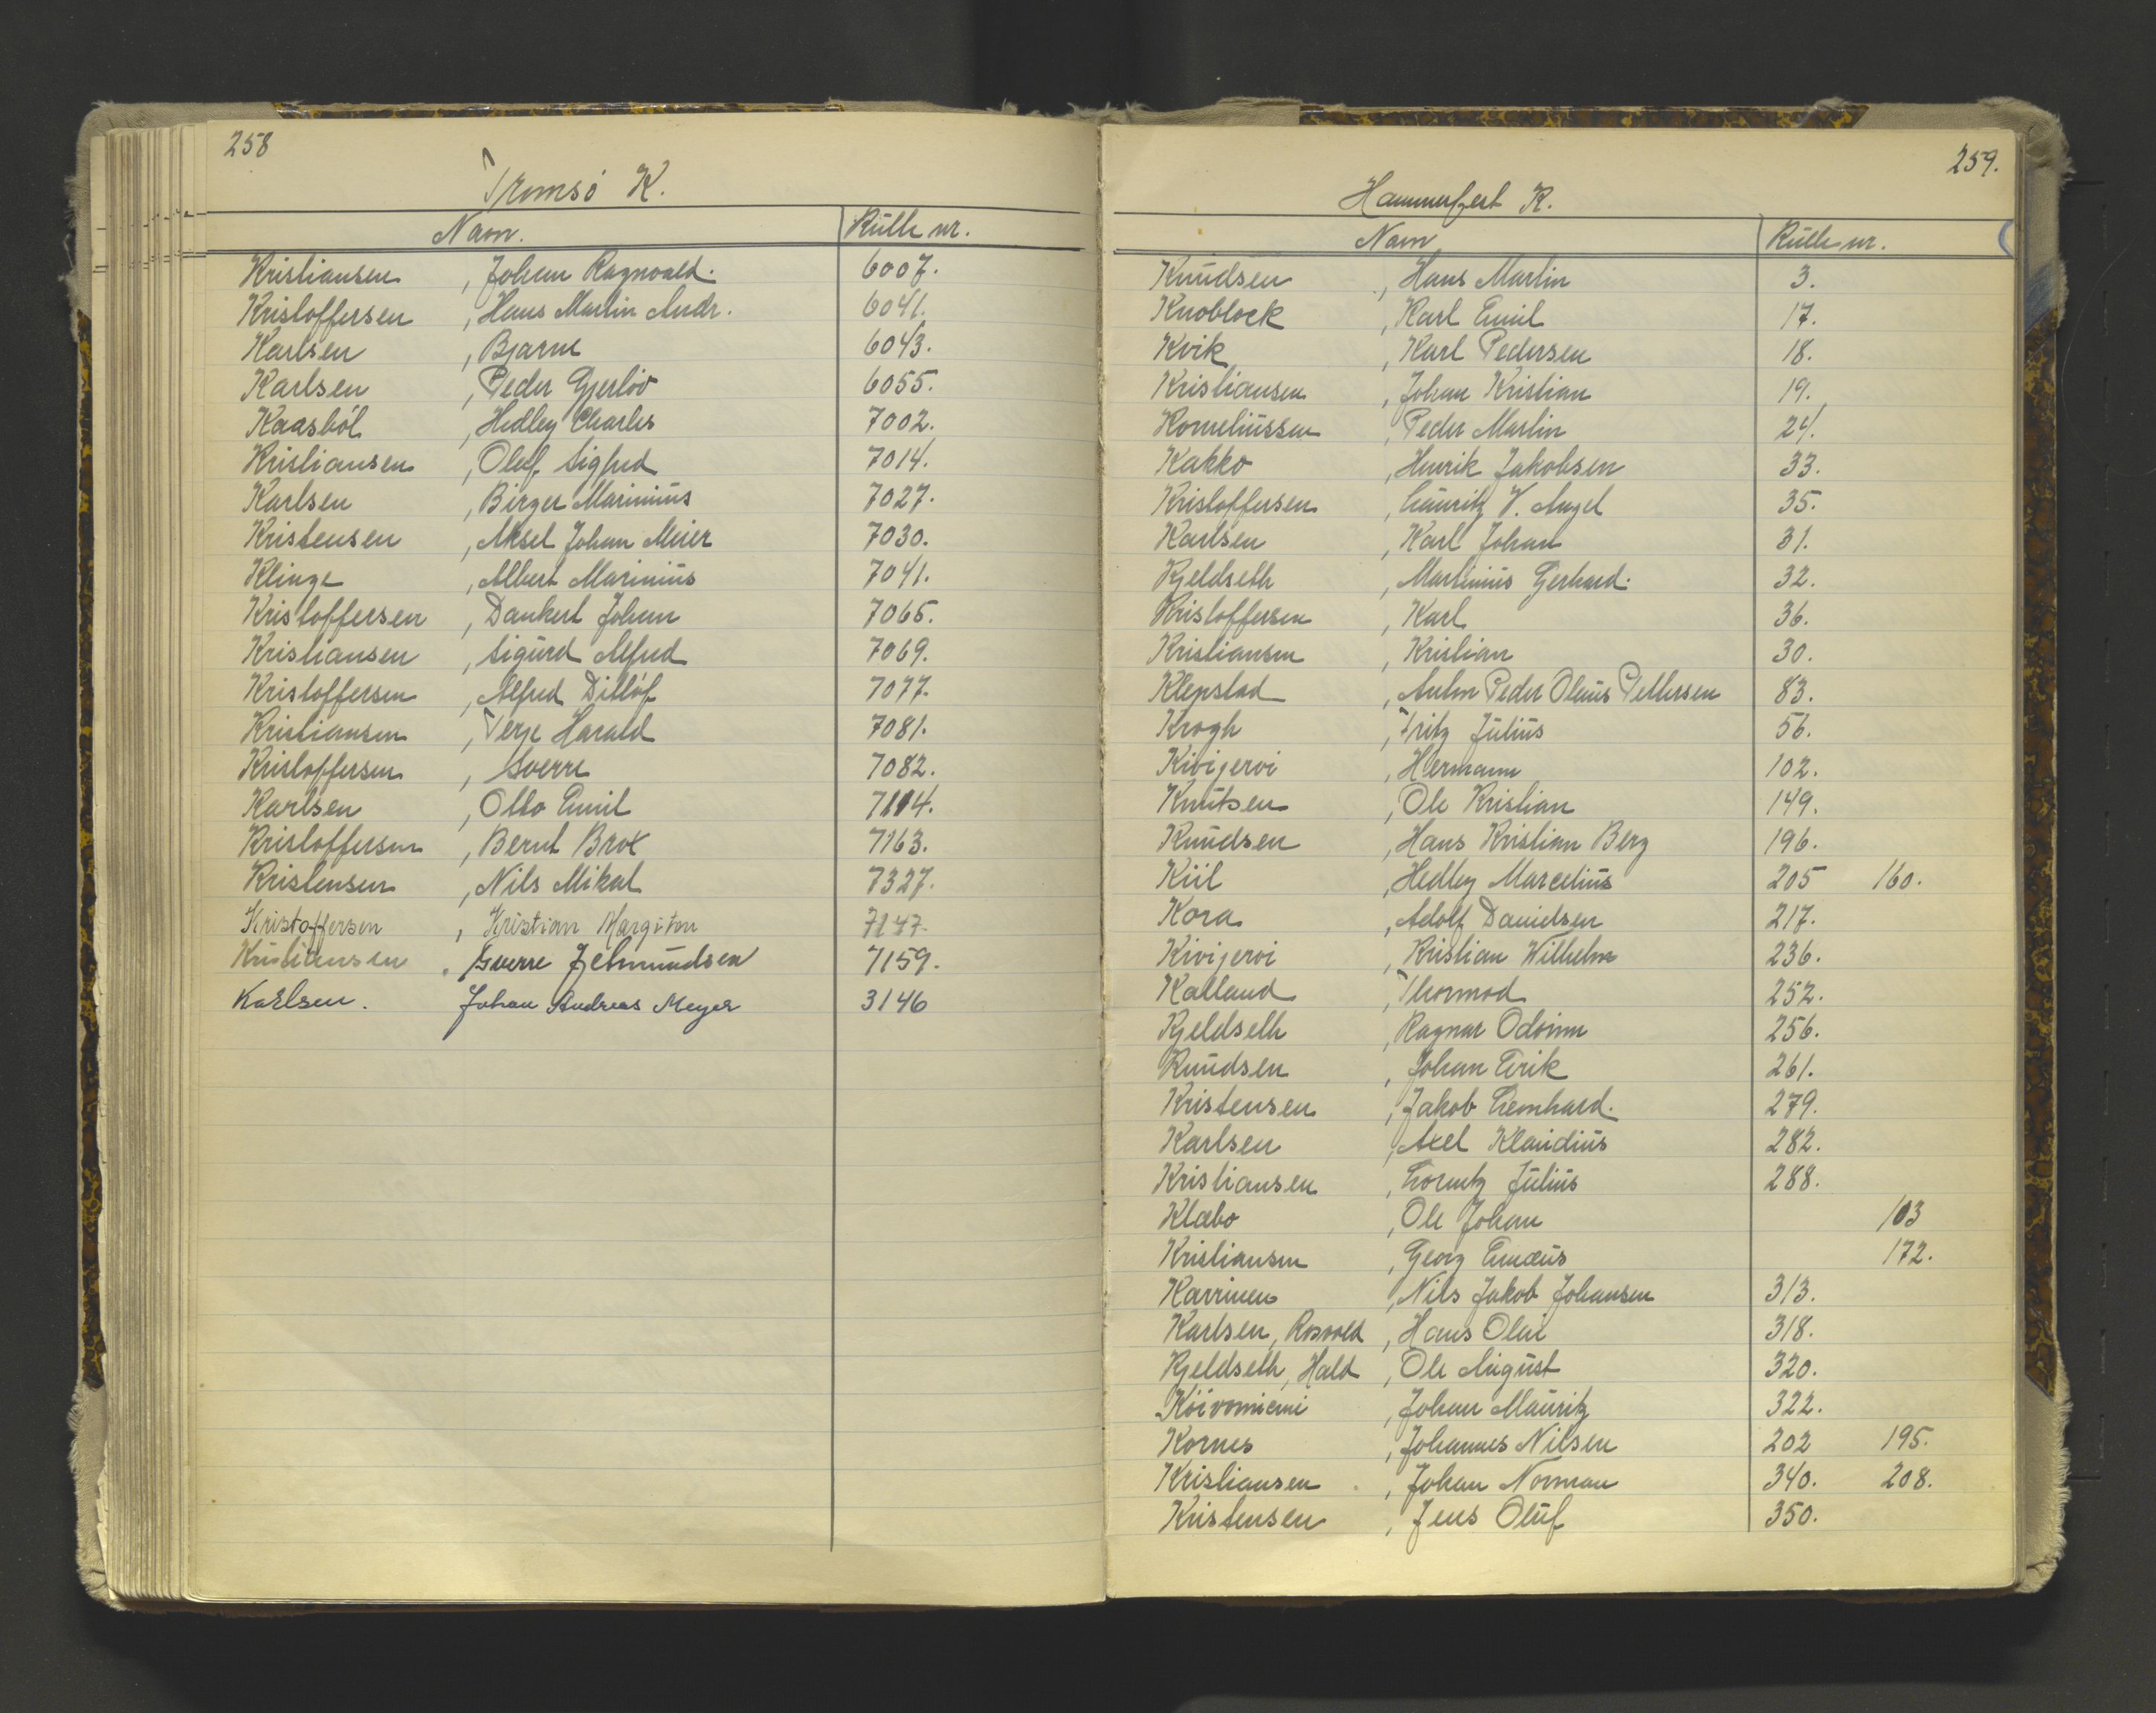 258
Tromsø K.
Navn. Rulle nr.
Kristiansen , Johan Ragnvald. 6007.
Kristoffersen , Hans Martin Andr. 6041.
Karlsen , Bjarne 6043.
Karlsen , Peder Gjerløv 6055.
Kaasbøl , Hedley Charles 7002.
Kristiansen , Oluf Sigfred 7014.
Karlsen , Birger Marinius 7027.
Kristensen , Aksel Johan Meier 7030.
Klinge , Albert Marinius 7041.
Kristoffersen , Dankert Johan 7065.
Kristiansen , Sigurd Alfred 7069.
Kristoffersen , Alfred Ditløf 7077.
Kristiansen , Terje Harald 7081.
Kristoffersen , Sverre 7082.
Karlsen , Otto Emil 7114.
Kristoffersen , Bernt Brox 7163.
Kristensen , Nils Mikal 7327.
Kristoffersen , Kristian Margiton 7147.
Kristiansen , Sverre Jelmundsen 7159.
Karlsen. Johan Andreas Meyer 3146
259.
Hammerfest K.
Navn Rulle nr.
Knudsen , Hans Martin 3.
Knoblock , Karl Emil 17.
Kvik , Karl Pedersen 18.
Kristiansen , Johan Kristian 19.
Korneliussen , Peder Martin 24.
Kakko , Henrik Jakobsen 33.
Kristoffersen , Lauritz V. Angel 35.
Karlsen , Karl Johan 31.
Kjeldseth , Martinius Gerhard. 32.
Kristoffersen , Karl 36.
Kristiansen , Kristian 30.
Klepstad , Anton Peder Olaus Pettersen 83.
Krogh , Fritz Julius 56.
Kivijervi , Hermann 102.
Knutsen , Ole Kristian 149.
Knudsen , Hans Kristian Berg 196.
Kiil , Hedley Marcelius 205 160.
Kora , Adolf Danielsen 217.
Kivijervi , Kristian Wilhelm 236.
Kalland , Thormod 252.
Kjeldseth , Ragnar Odvinn 256.
Knudsen , Johan Eirik 261.
Kristensen , Jakob Leonhard. 279.
Karlsen , Axel Klaudius 282.
Kristiansen , Lorentz Julius 288.
Klæbo , Ole Johan 103
Kristiansen , Georg Emæus 172.
Karrinen , Nils Jakob Johansen 313.
Karlsen, Rosvold , Hans Olai 318.
Kjeldseth, Hald , Ole August 320.
Koivoniemi , Johan Mauritz 322.
Kornes , Johannes Nilsen 202 195.
Kristiansen , Johan Norman 340. 208.
Kristensen , Jens Oluf 350.